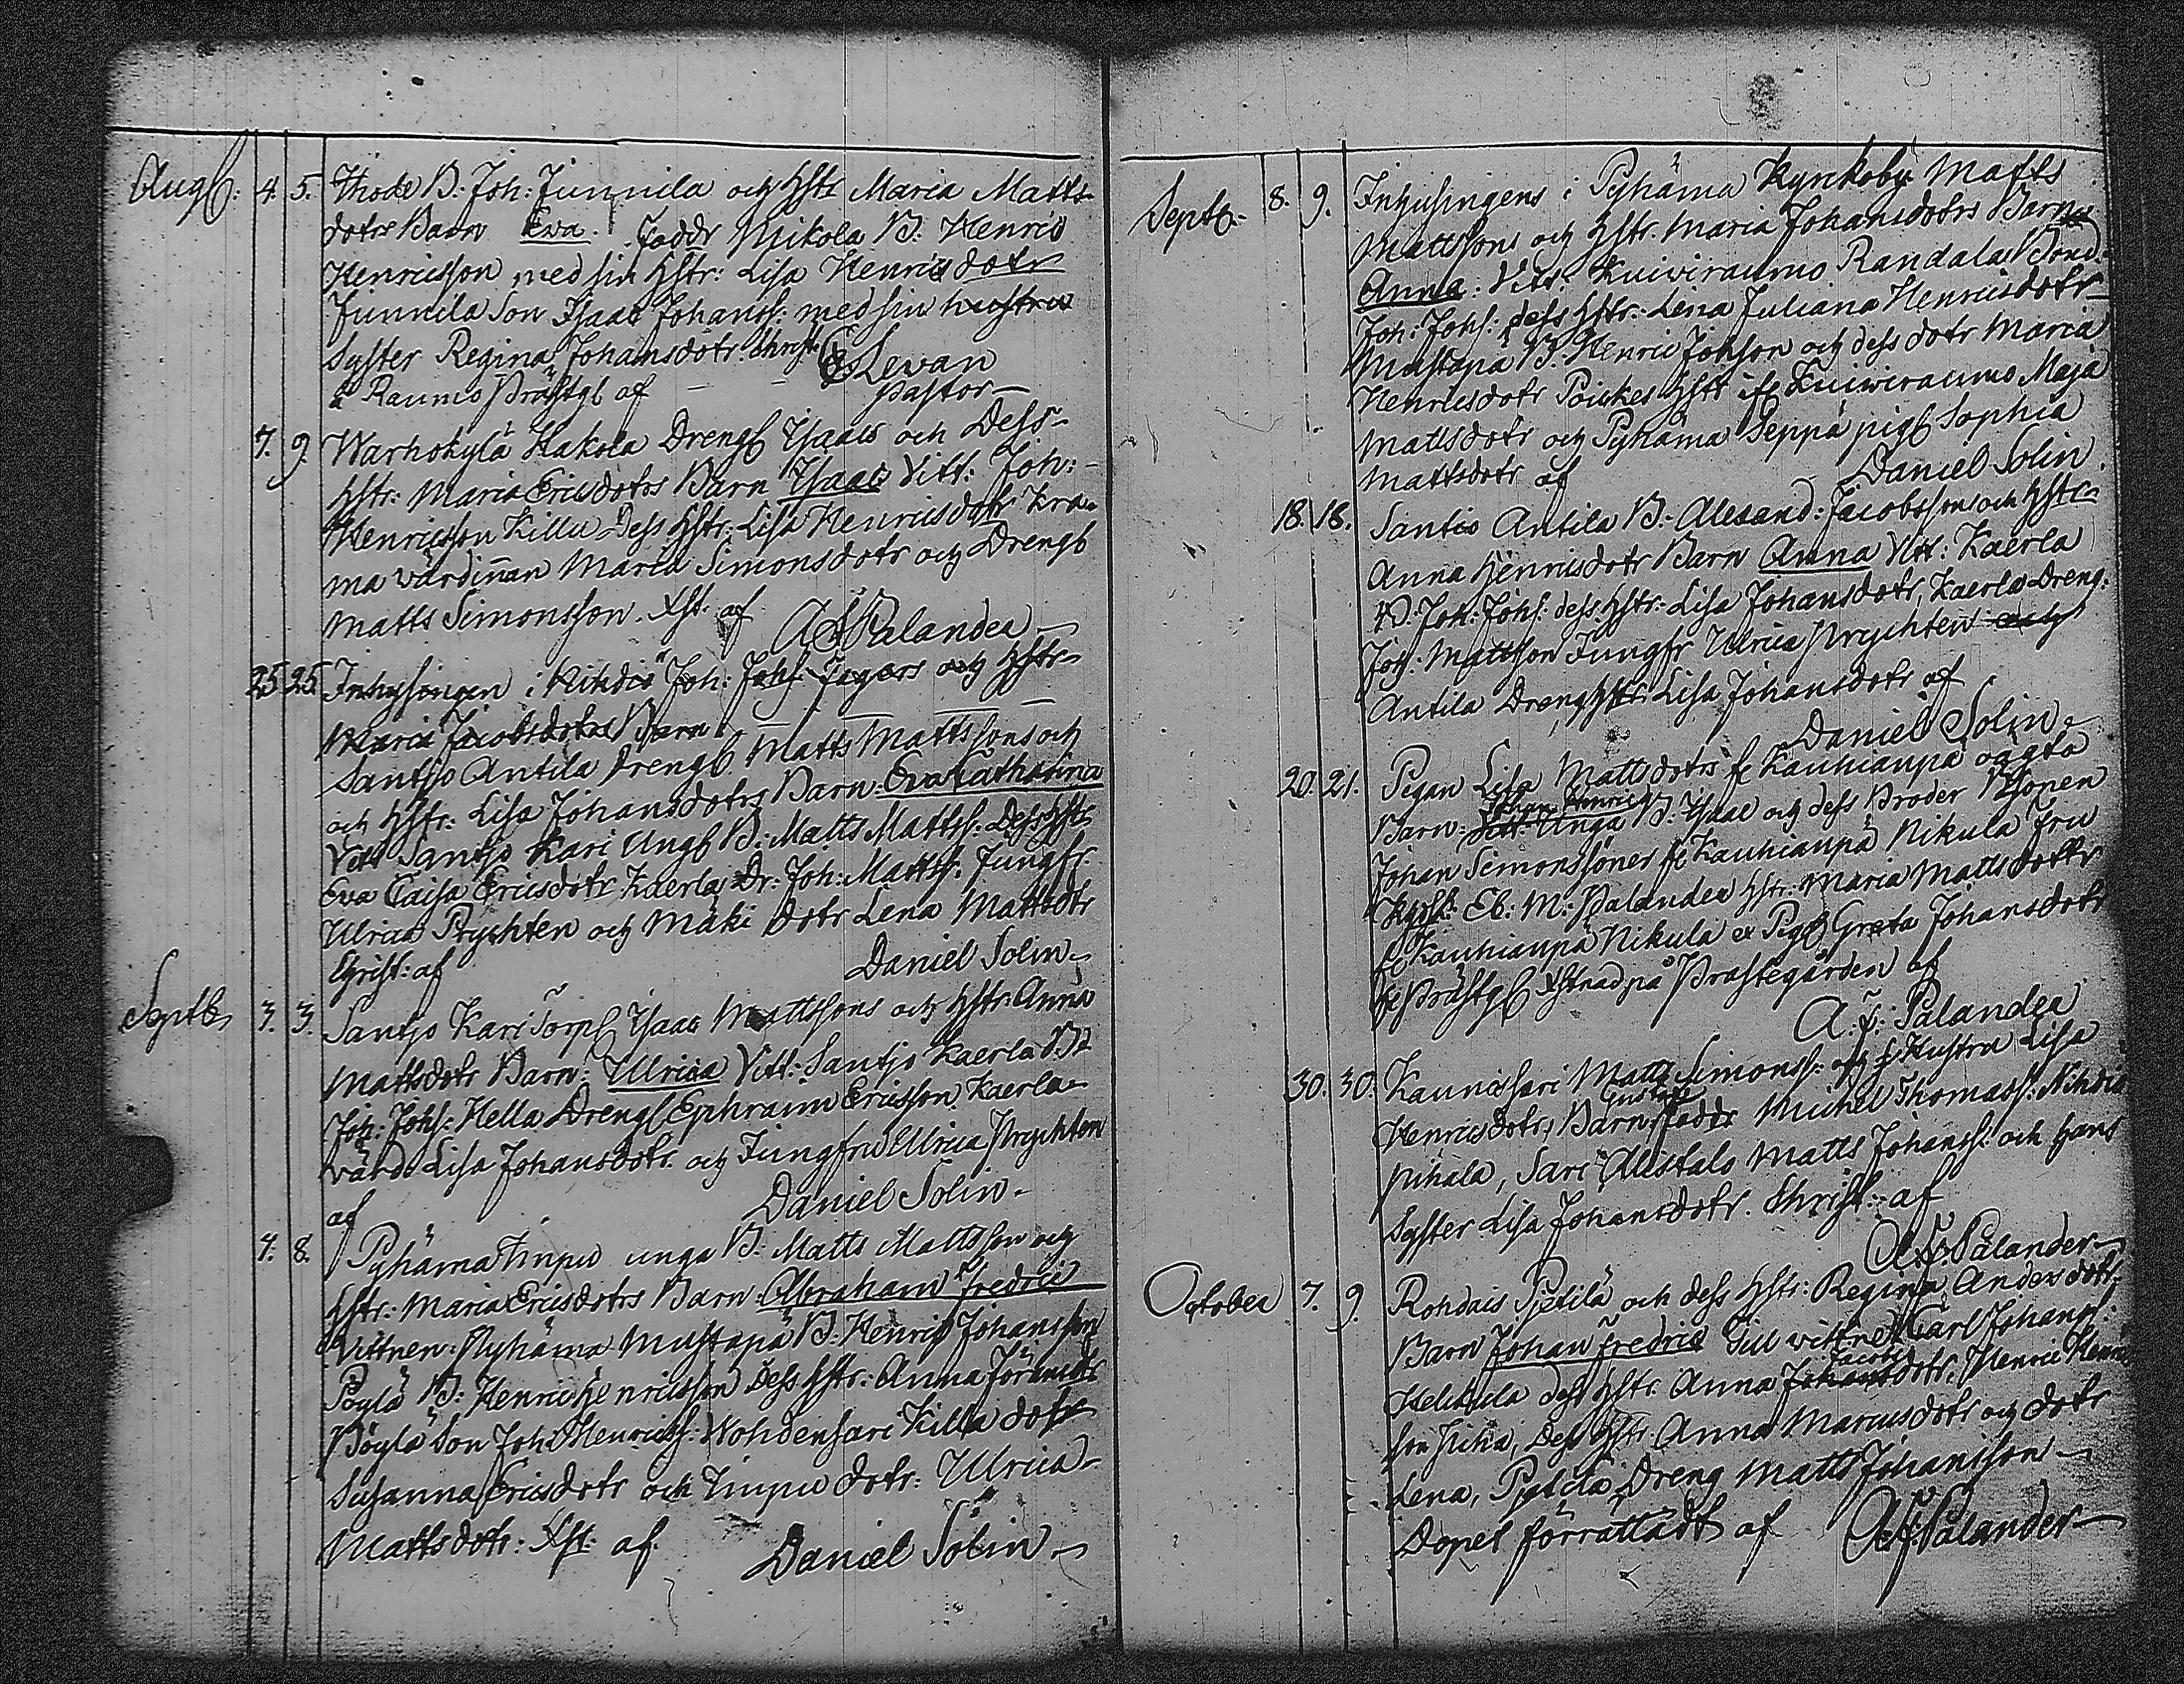 Augs: 4. 5. Ihode B. Joh: Junnila och Hstr Maria Matts-
dotrs Barn Eva. Faddr Mikola B. Henric
Henricsson med sin Hstr: Lisa Henricsdotr
Junnila Son Isaac Johanss: med sin hustru
Syster Regina Johansdotr. Christ:
á Raumo Prästgl af E Levan
Pastor
7. 9. Warhokylä Hakola Drengs Isaacs och Dess
Hstr: Maria Ericsdotrs Barn Isaac Vitt: Joh:
Henricsson Killu Dess Hstr: Lisa Henricsdotr
ma värdinnan Maria Simonsdotr och Drengs
Matts Simonsson. Xst. af
A F Palander
25 25. Inhysingen i Nihdiö Joh: Johs. och Hstr
Maria Jacobsdotrs Barn
Santjo Antila Drengs Matts Mattssons och
och Hstr: Lisa Johansdotrs Barn: Eva Catharina
Vitt Santjo Kari Ungs B: Matts Mattss: Dess Hstr
Eva Caisa Ericsdotr Kaerla Dr: Joh: Mattss: Jungfr
Ulrica Prychten och Mäki dotr Lena Mattsdotr
Christ: af Daniel Solin
Septb 3. 3. Santjo Kari Torps Isaac Mattssons och Hstr: Anna
Mattsdotr Barn: Ulrica Vitt: Santjo Kaerla B:
Joh: Johs: Hella Drengs Ephraim Ericsson, Kaerla
värd: Lisa Johansdotr. och Jungfru Ulrica Prychten
af Daniel Solin
4. 8. Pyhäma Timpu unga B: Matts Mattsson och
Hstr: Maria Ericsdotrs Barn Abraham Fredric
Vittnen: Pyhäma Mustapä B: Henric Johansson
Pöylä B: Henric Henricsson Dess Hstr: Anna
Pöylä Son Joh: Henricss: Wohdensari Killa dotr
Susanna Ericsdotr och Timpu dotr: Ulrica
Mattsdotr: Xst. af. Daniel Solin
Septb. 8. 9. Inhysingens i Pyhäma Kyrckoby Matts
Mattssons och Hstr. Maria Johansdotrs Barn
Anna: Vitt. Kuiwiraumo Randala Bond.
Joh: Johs: dess Hstr: Lena Juliana Henricsdotr
Mustapä B: Henric Johsson och dess dotr Maria
Henricsdotr Hstr Kuiwiraumo Maja
Mattsdotr och Pyhäma Seppä pigs Sophia
Mattsdotr af Daniel Solin
18. 18. Santio Antila B: Alexand: Jacobssons och Hstr
Anna Henricsdotr Barn Anna Vitt: Kaerla
B: Joh: Johs: dess Hstr: Lisa Johansdotr, Kaerla Dreng:
Joh: Mattsson Jungfr Ulrica Prychten och
Antila Drengs Hstr: Lisa Johansdotr af
Daniel Solin
20. 21. Pigan Lisa Mattsdotrs fr Kauhianpä oägta
Johan Henric
Barn: Vitt: Unga B: Isaac och dess Broder
Johan Simonssöner fr Kauhianpä Nikula Fru
Eb: M: Palander Hstr: Maria Mattsdotr
fr Kauhianpä Nikula Pigs Greta Johansdotr
fr Prästgl Xstnad på Prästegården af
A: F: Palander
30. 30. Kaunissari Matts Simonss: och Hustru Lisa
Gustaf
Henricsdotrs Barn Faddr Michel Thomass: Nihdiö
Pihala, Sari Alastalo Matts Johanss: och hans
Syster Lisa Johansdotr. Christ: af
A F Palander
October 7. 9. Rohdais Pietilä och dess Hstr: Regina Andersdotr
Barn Johan Fredric Till vittne Carl Johanss:
Jacobs
Heikkila dess Hstr. Anna Johansdotr, Henric Henrics
son Dess Hstr: Anna Marcusdotr och dotr
Lena, Pietilä Dreng Matts Johansson
Dopet förrättadt af A F Palander